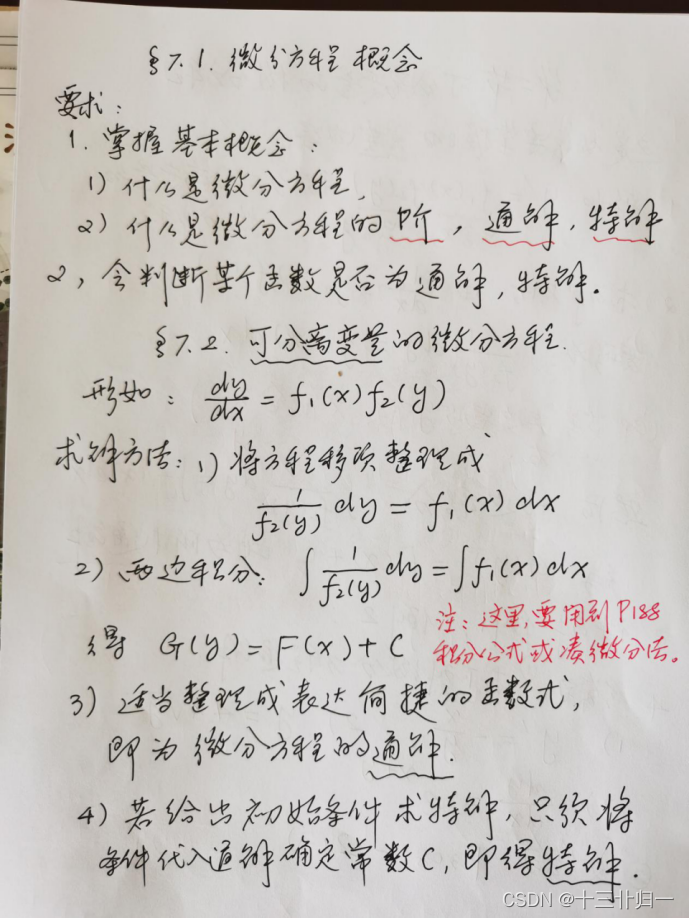 §7.1. 微分方程概念
要求:
1. 掌握基本概念:
1) 什么是微分方程,
2) 什么是微分方程的阶, 通解, 特解
2, 会判断某个函数是否为通解, 特解.
§7.2. 可分离变量的微分方程.
形如: dy/dx = f₁(x)f₂(y)
求解方法: 1) 将方程移项整理成
1/f₂(y) dy = f₁(x) dx
2) 两边积分: ∫ 1/f₂(y) dy = ∫ f₁(x) dx
得 G(y) = F(x) + C
注: 这里, 要用到P188
积分公式或凑微分法。
3) 适当整理成表达简捷的函数式,
即为微分方程的通解.
4) 若给出初始条件求特解, 只须将
条件代入通解确定常数C, 即得特解.
CSDN @十三卝归一